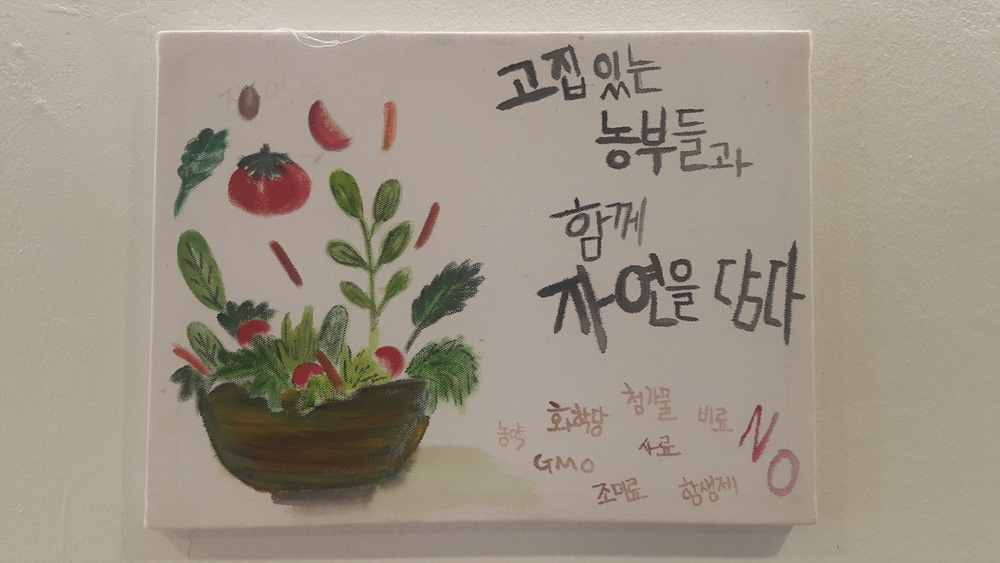 고집있는
농부들과
함께
자연을 담다
첨가물
농약 화학당 비료 NO
사료
GMO
조미료 항생제